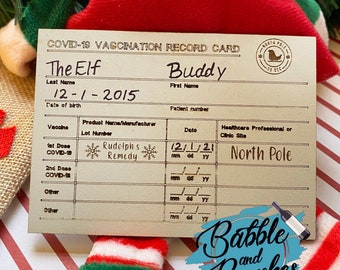 COVID-19 VACCINATION RECORD CARD
NORTH POLE
The Elf Buddy
Last Name First Name
12-1-2015
Date of birth Patient number
Vaccine Product Name/Manufacturer Lot Number Date Healthcare Professional or Clinic Site
1st Dose COVID-19 Rudolph's Remedy 12/1/21 mm dd yy North Pole
2nd Dose COVID-19 / / mm dd yy
Other / / mm dd yy
Other / / mm dd yy
Babble
and